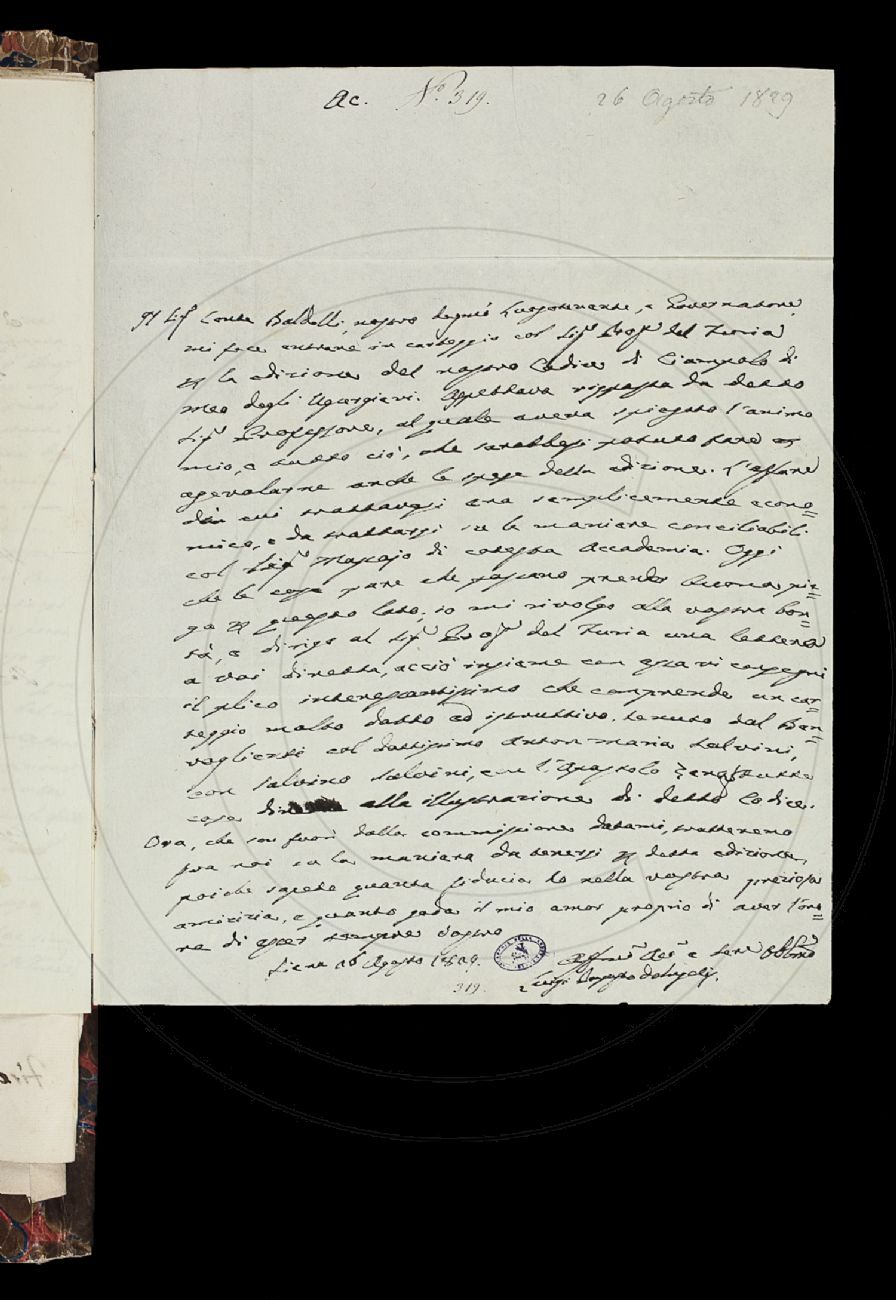 Ac. N.º 319. 26 Agosto 1829
Il Sigr Conte Baldelli, nostro degnmo Luogotenente, e Governatore,
mi fece entrare in carteggio col Sigr Profr del Furia
p la edizione del nostro Codice di Ciampolo di
Meo degli Ugurgieri. Aspettava risposta da detto
Sigr Professore, al quale aveva spiegato l'animo
mio, e tutto ciò, che sarebbesi potuto fare p
agevolarne anche le spese della edizione. L'affare
di cui trattavasi era semplicemente econo=
mico, e da trattarsi su le maniere conciliabili
col Sigr Massajo di cotesta Accademia. Oggi
che le cose pare che possano prender buona pie=
ga p questo lato, io mi rivolgo alla vostra bon=
tà, e dirigo al Sigr Profr del Furia una lettera
a voi diretta, acciò insieme con essa vi consegni
il plico interessantissimo che comprende un car=
teggio molto dotto ed istruttivo, tenuto dal Ben=
voglienti col dottissimo Anton-maria Salvini,
con Salvino Salvini, con l'Apostolo Zeno, tutte
cose di alla illustrazione di detto Codice.
Ora, che son fuori dalla commissione datami, tratteremo
fra noi su la maniera da tenersi p detta edizione,
poichè sapete quanta fiducia ho nella vostra preziosa
amicizia, e quanto goda il mio amor proprio di aver l'ono=
re di esser sempre vostro
Siena 26 Agosto 1829.
Affmo Aco e Serv Obbmo
Luigi de Angelis.
319.